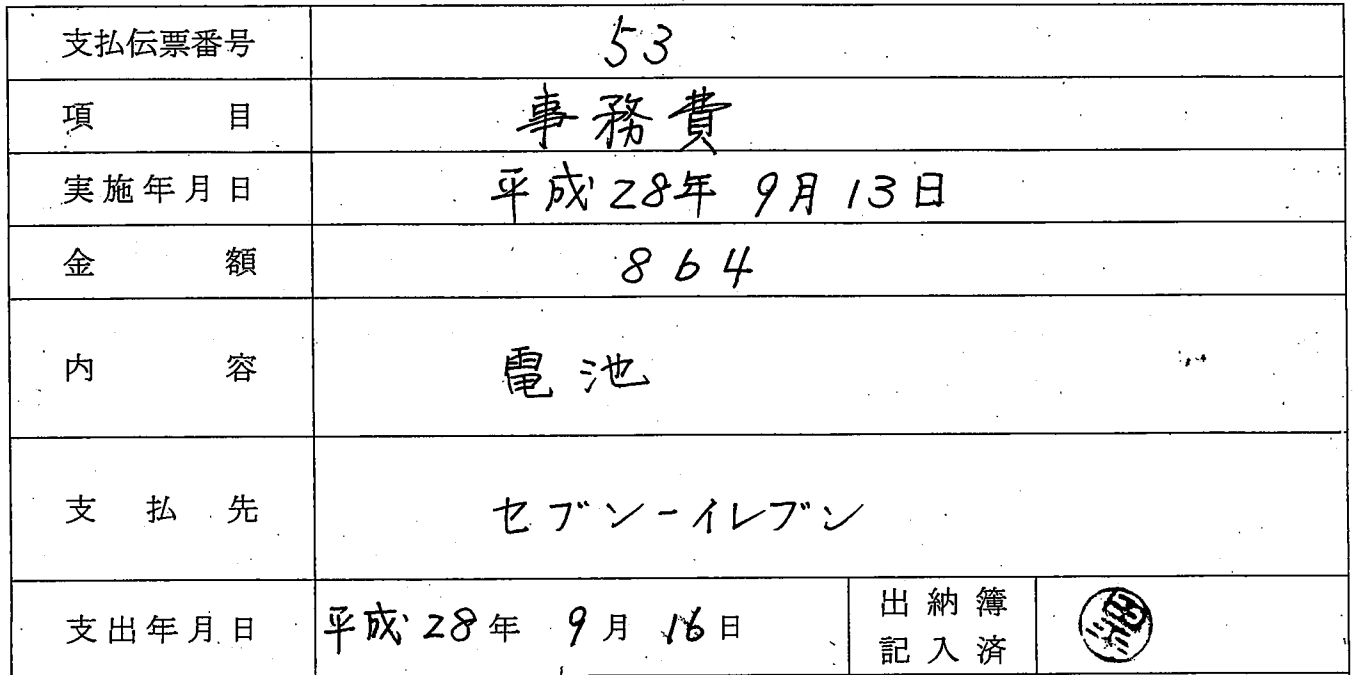 支払伝票番号 53
項目 事務費
実施年月日 平成28年 9月13日
金額 864
内容 電池
支払先 セブン-イレブン
支出年月日 平成28年 9月16日 出納簿
記入済